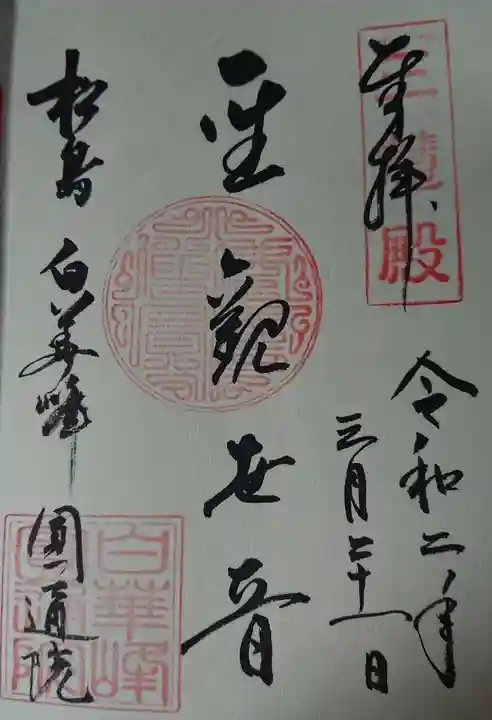 奉拝
三慧殿
令和二年
三月二十一日
聖観世音
松島 白華峰 圓通院
白華峰圓通院